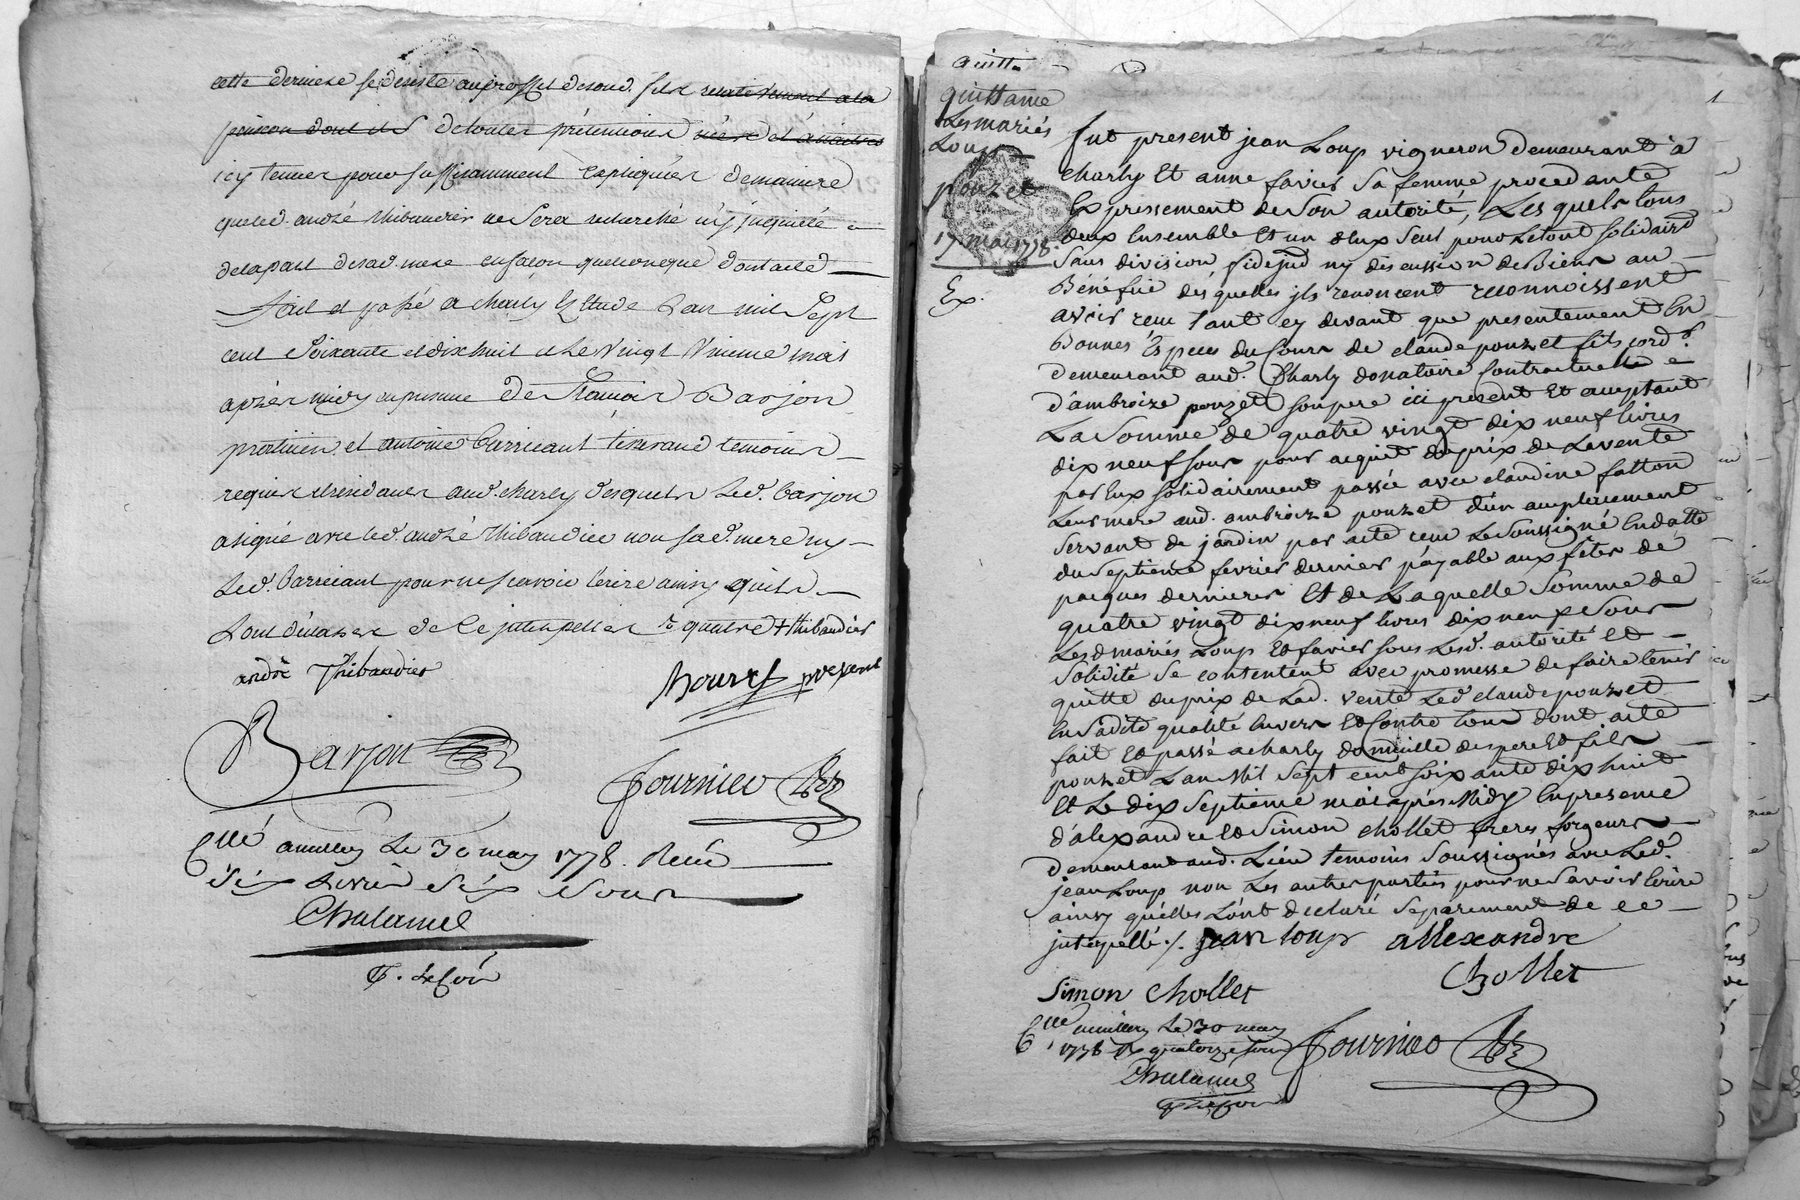 cette derniere se desiste au proffit desond. fils relativement a la
pension dont il S de toutes prétentions
icy tenues pour suffisamment expliquées de maniere
queled. andré thibaudier ne sera recherché ny inquieté
delapart desad. mere en façon quelconque dont acte
fait et passé a charly Etude l'an mil sept
cent soixante et dix huit et le vingt mai
après midy en presence de Barjon
praticien et antoine tisserand temoins
requis et residants aud. charly desquels led. barjon
a signé avec led. andré thibaudier non sad. mere ny
led. pour ne scavoir écrire ainsy quils
ont déclaré de ce interpellés thibaudier
andré Thibaudier
present
Barjon
fournier
Cllé amillery le 30 may 1778. Reçu
six livres six sous
Chalamel
quitt.
quittance
Les mariés
Loup
pouzet
17. mai 1778.
Ex.
1
fut present jean Loup vigneron demeurant à
charly Et anne favier sa femme procedante
Expressement de son autorité, Lesquels tous
deux Ensemble Et un d'Eux seul pour Letout solidaird
sans division, fidejud ny discussion de Biens au
Bénéfice desquelles jls renoncent reconnoissent
avoir reçu tant cy devant que presentement En
Bonnes Espèces du Cours de claude pouzet fils cordr.
demeurant aud. Charly donatoire Contractuelle
d'ambroize pouzet son pere ici present Et acceptant
La somme de quatre vingt dix neuf livres
dix neuf sous pour acquit du prix de Lavente
par Eux solidairement passée avec claudine fatton
Leur mere aud. ambroize pouzet d'un amplacement
servant de jardin par acte reçu Le soussigné Endatte
du septieme fevrier dernier payable aux fêtes de
paques dernieres Et de Laquelle somme de
quatre vingt dix neuf livres dix neuf sous
Lesd mariés Loup Et favier sous Lesd. autorité Et
solidité se contentent avec promesse de faire tenir
quitte du prix de Lad. vente Led claude pouzet
En sadite qualité Envers Et Contre tous dont acte
fait Et passé acharly domicille des pere Et fils
pouzet L'an Mil sept cent soixante dix huit
Et Le dix septieme mai après Midy En presence
d'alexandre Et simon chollet freres forgeurs
demeurant aud. Lieu temoins soussignés avec Led.
jean Loup non Les autres parties pour ne savoir Ecrire
ainsy qu'elles L'ont declaré séparement de ce
jnterpellé./. jean loup allexandre
Chollet
simon chollet
Cllé amillery le 30 may
1778 Rx quatorze sous
fournier
Chalamel